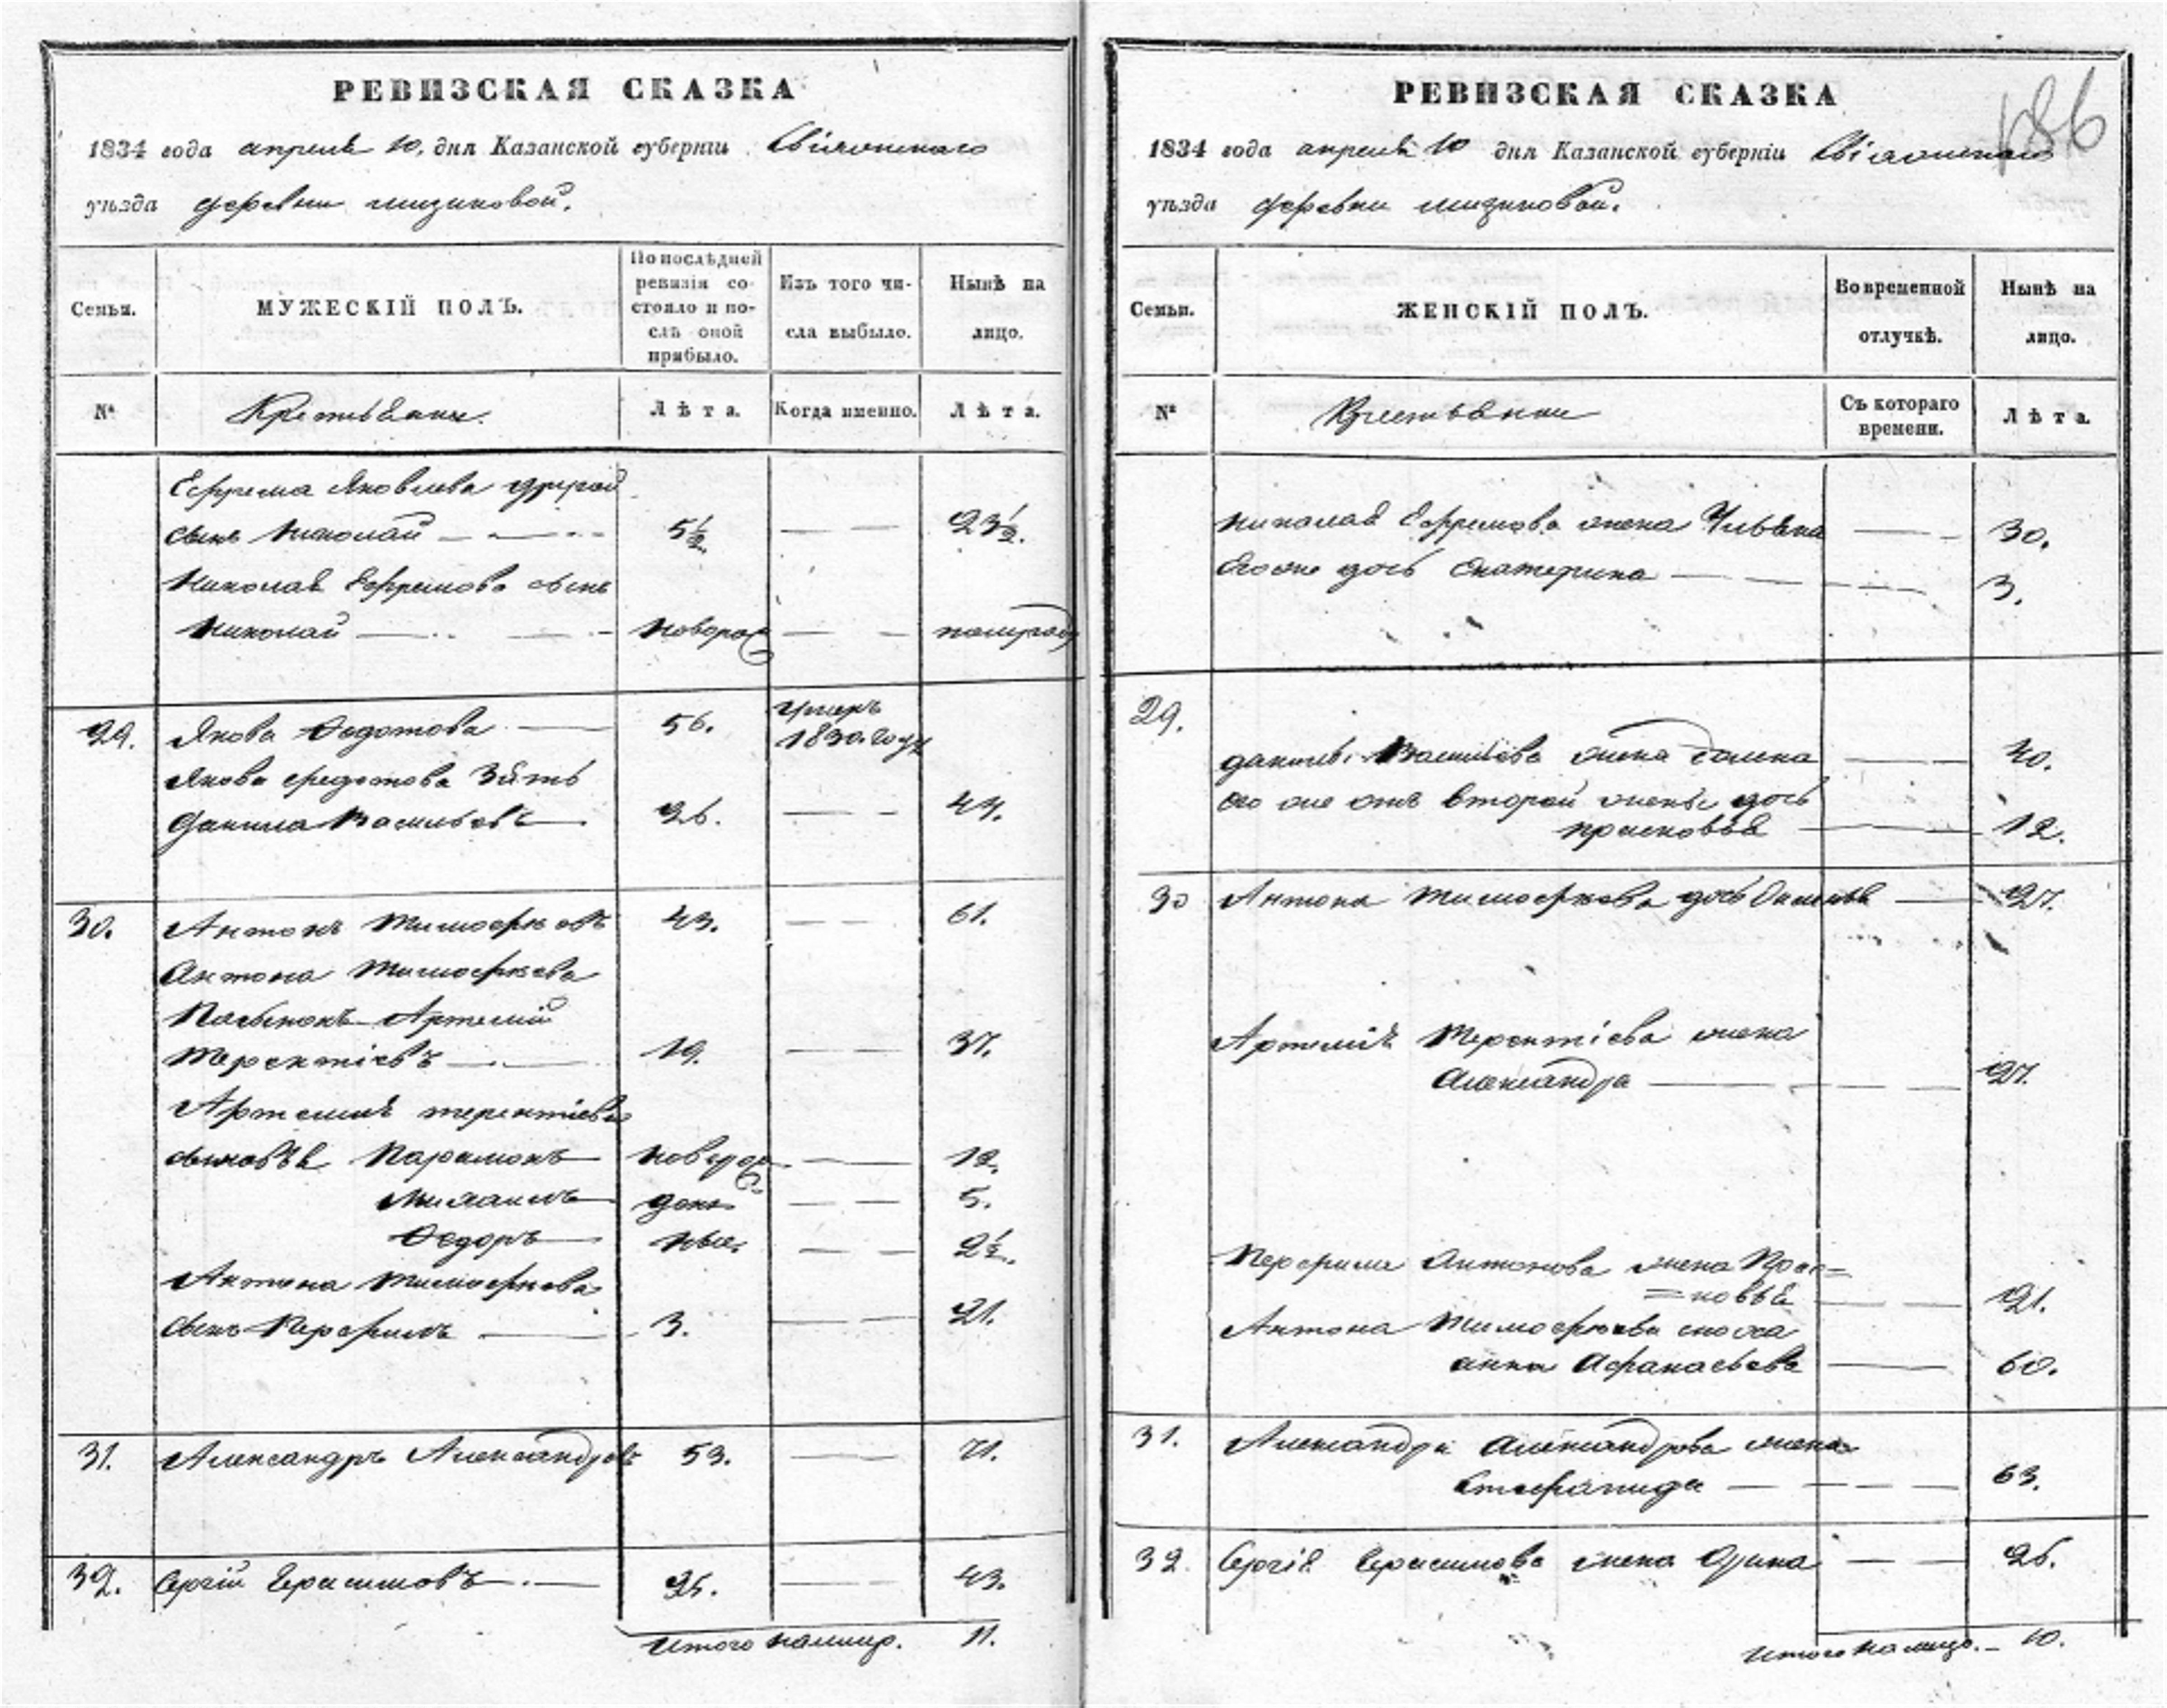 РЕВИЗСКАЯ СКАЗКА
1834 года апреля 10. дня Казанской губерніи Свіяжскаго
уѣзда деревни
Семьи.
МУЖЕСКІЙ ПОЛЪ.
По послѣдней ревизіи состояло и послѣ оной прибыло.
Изъ того числа выбыло.
Нынѣ на лицо.
№
Крестьяне.
Лѣта.
Когда именно.
Лѣта.
Ефрема Яковлева другой
сынъ Николай — 5½. — 23½.
Николая Ефремова сынъ
Николай — новорож — полгода
29. Якова Федотова — 56. умеръ 1830. году
Якова Федотова зять
Данила Васильевъ — 26. — 44.
30. Антонъ Тимофѣевъ 43. — 61.
Антона Тимофѣева
Пасынокъ Артемій
Терентіевъ — 19. — 37.
Артемія Терентіева
сыновья Парамонъ — новорож — 12.
Михаилъ — ден — 5.
Федоръ — ные. — 2½.
Антона Тимофѣева
сынъ Перфилъ — 3. — 21.
31. Александръ Александровъ 53. — 71.
32. Сергій Герасимовъ — 25. — 43.
Итого налицо. 11.
РЕВИЗСКАЯ СКАЗКА
186
1834 года апреля 10 дня Казанской губерніи Свіяжскаго
уѣзда деревни
Семьи.
ЖЕНСКІЙ ПОЛЪ.
Во временной отлучкѣ.
Нынѣ на лицо.
№
Крестьянки
Съ котораго времени.
Лѣта.
Николая Ефремова жена Ульяна — 30.
Его же дочь Екатерина — 3.
29.
Данилы Васильева жена — 40.
его же отъ второй жены дочь
Прасковья — 12.
30 Антона Тимофѣева дочь — 27.
Артемія Терентіева жена
Александра — 27.
Перфила Антонова жена Прас=
=ковья — 21.
Антона Тимофѣева
анна Афанасьева — 60.
31. Александра Александрова жена
Стефанида — 63.
32. Сергія Герасимова жена Орина — 26.
Итого налицо. — 10.